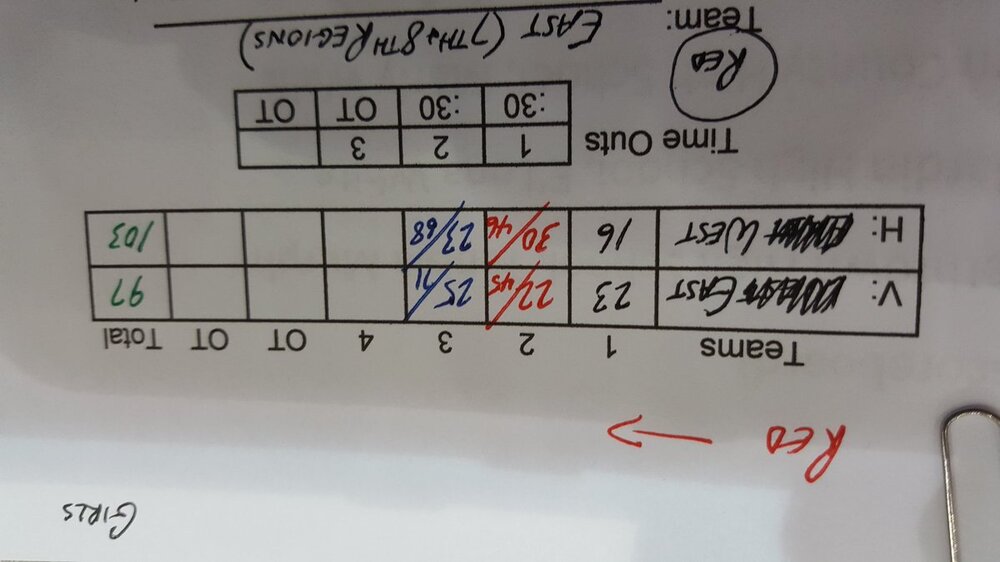 GIRLS
RED →
Teams 1 2 3 4 OT OT Total
V: EAST 23 22/45 25/71 97
H: WEST 16 30/46 23/68 103
Time Outs 1 2 3
:30 :30 OT OT
RED
Team: EAST (7TH & 8TH REGIONS)